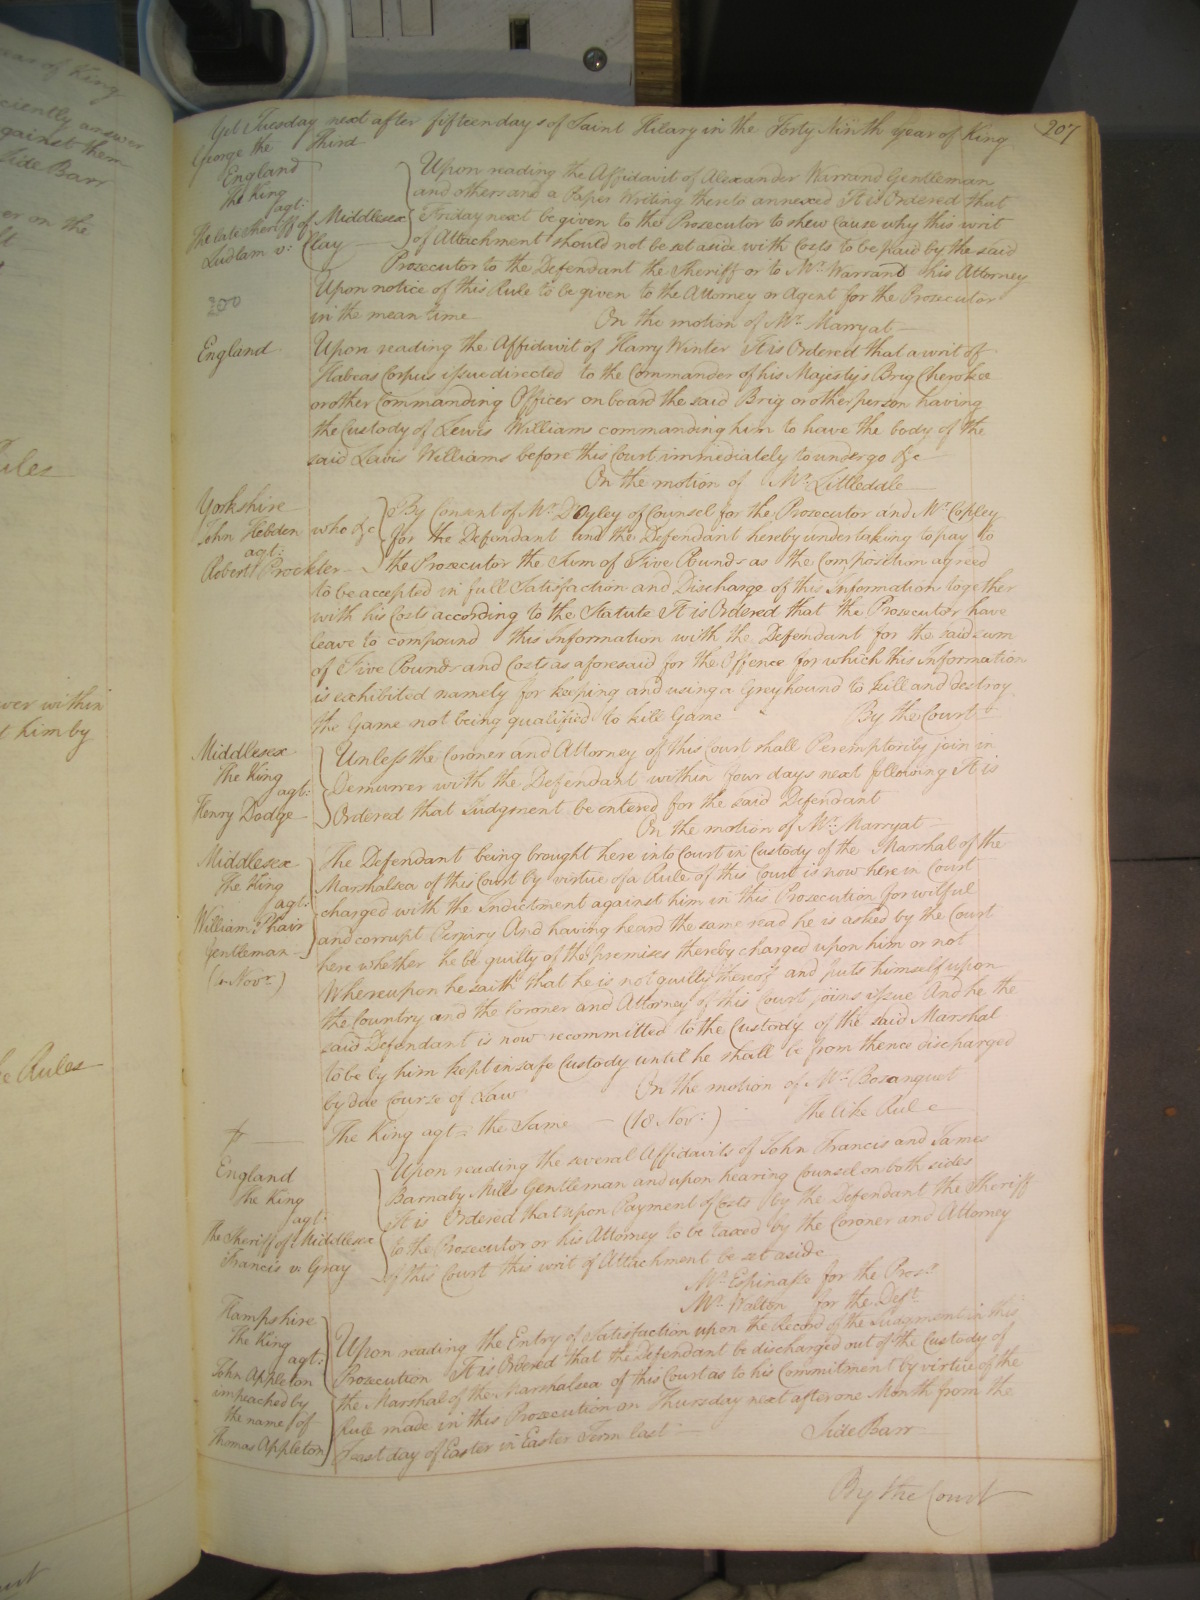 207
Yet Tuesday next after fifteen days of Saint Hilary in the Forty Ninth year of King
George the Third
England
The King
agt:
The late Sheriff of Middlesex
Ludlam v: Clay
200
Upon reading the Affidavit of Alexander Warrand Gentleman
and others and a Paper Writing thereto annexed It is Ordered that
Friday next be given to the Prosecutor to shew Cause why this writ
of Attachment should not be set aside with Costs to be paid by the said
Prosecutor to the Defendant the Sheriff or to Mr. Warrand his Attorney
Upon notice of this Rule to be given to the Attorney or Agent for the Prosecutor
in the mean time
On the motion of Mr. Marryat
England
Upon reading the Affidavit of Harry Winter It is Ordered that a writ of
Habeas Corpus issue directed to the Commander of his Majesty's Brig Cherokee
or other Commanding Officer on board the said Brig or other person having
the Custody of Lewis Williams commanding him to have the body of the
said Lewis Williams before this Court immediately to undergo &c
On the motion of Mr. Littledale
Yorkshire
John Hebden who &c
agt:
Robert Prockter
By Consent of Mr. Doyley of Counsel for the Prosecutor and Mr. Copley
for the Defendant and the Defendant hereby undertaking to pay to
the Prosecutor the Sum of Five Pounds as the Composition agreed
to be accepted in full Satisfaction and Discharge of this Information together
with his Costs according to the Statute It is Ordered that the Prosecutor have
leave to compound this Information with the Defendant for the said sum
of Five Pounds and Costs as aforesaid for the Offence for which this Information
is exhibited namely for keeping and using a Greyhound to kill and destroy
the Game not being qualified to kill Game
By the Court
Middlesex
The King
agt:
Henry Dodge
Unless the Coroner and Attorney of this Court shall Peremptorily join in
Demurrer with the Defendant within four days next following It is
Ordered that Judgment be entered for the said Defendant
On the motion of Mr. Marryat
Middlesex
The King
agt:
William Phair
Gentleman
Novr.)
The Defendant being brought here into Court in Custody of the Marshal of the
Marshalsea of this Court by virtue of a Rule of this Court is now here in Court
charged with the Indictment against him in this Prosecution for wilful
and corrupt Perjury And having heard the same read he is asked by the Court
here whether he be guilty of the premises thereby charged upon him or not
Whereupon he saith that he is not guilty thereof and puts himself upon
the Country and the Coroner and Attorney of this Court joins issue And he the
said Defendant is now recommitted to the Custody of the said Marshal
to be by him kept in safe Custody until he shall be from thence discharged
by due Course of Law
On the motion of Mr. Bosanquet
The King agt: the Same (18 Novr.) The like Rule
England
The King
agt:
The Sheriff of Middlesex
Francis v: Gray
Upon reading the several Affidavits of John Francis and James
Barnaby Mills Gentleman and upon hearing Counsel on both sides
It is Ordered that upon Payment of Costs by the Defendant the Sheriff
to the Prosecutor or his Attorney to be taxed by the Coroner and Attorney
of this Court this writ of Attachment be set aside
Mr. Espinasse for the Prosr.
Mr. Walton for the Deft.
Hampshire
The King
agt:
John Appleton
impeached by
the name of
Thomas Appleton
Upon reading the Entry of Satisfaction upon the Record of the Judgment in this
Prosecution It is Ordered that the Defendant be discharged out of the Custody of
the Marshal of the Marshalsea of this Court as to his Commitment by virtue of the
Rule made in this Prosecution on Thursday next after one Month from the
feast day of Easter in Easter Term last
Side Barr
By the Court